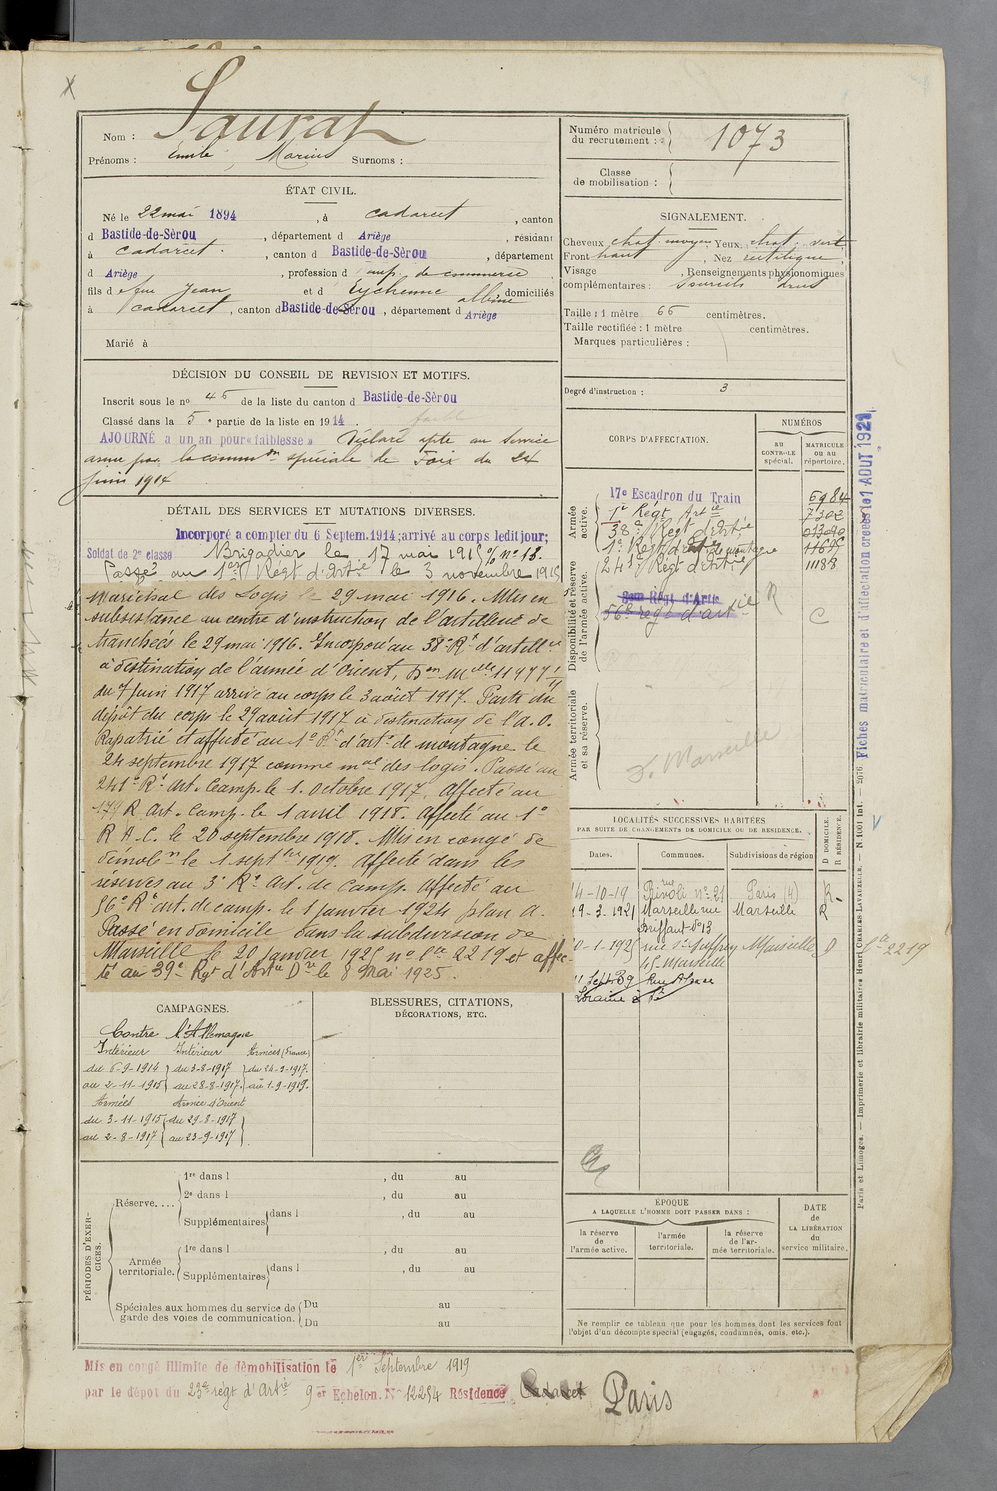 Saurat
Nom :
Prénoms : Emile, Marius Surnoms :
Numéro matricule du recrutement : 1073
Classe de mobilisation :
ÉTAT CIVIL.
Né le 22 mai 1894, à Cadarcet, canton
d Bastide-de-Sèrou, département d Ariège, résidant
à Cadarcet, canton d Bastide-de-Sèrou, département
d Ariège, profession d emp. de commerce
fils d feu Jean et d Eychenne Albine domiciliés
à Cadarcet, canton d Bastide-de-Sèrou, département d Ariège
Marié à
SIGNALEMENT.
Cheveux chat. moyen Yeux chat. vert
Front haut, Nez rectiligne
Visage , Renseignements physionomiques
complémentaires : Sourcils drus
Taille : 1 mètre 66 centimètres.
Taille rectifiée : 1 mètre centimètres.
Marques particulières :
Degré d'instruction : 3
DÉCISION DU CONSEIL DE REVISION ET MOTIFS.
Inscrit sous le no 46 de la liste du canton d Bastide-de-Sèrou
Classé dans la 5e partie de la liste en 1914
AJOURNÉ à un an pour « faiblesse » Déclaré apte au service
armé par la common spéciale de Foix du 24
juin 1914
DÉTAIL DES SERVICES ET MUTATIONS DIVERSES.
Incorporé à compter du 6 Septem. 1914; arrivé au corps ledit jour;
Soldat de 2e classe Brigadier le 17 mai 1915 no 18.
Passé au 1er Régt d'Artie le 3 novembre 1915
Maréchal des Logis le 29 mai 1916. Mis en
subsistance au centre d'instruction de l'artillerie de
tranchées le 29 mai 1916. Incorporé au 38e Rt d'artillie
à destination de l'armée d'Orient, Don Mlle 11977 1/4
du 7 juin 1917 arrivé au corps le 3 août 1917. Parti du
dépôt du corps le 29 août 1917 à destination de l'A.O.
Rapatrié et affecté au 1e Rt d'art. de montagne le
24 septembre 1917 comme mal des logis. Passé au
241e Rt Art. Camp. le 1. octobre 1917. Affecté au
17e R Art. Camp. le 1 avril 1918. Affecté au 1e
R A. C. le 20 septembre 1918. Mis en congé de
démobon le 1 septbre 1919. Affecté dans les
réserves au 3e Rt Art. de Camp. Affecté au
56e Rt art. de camp. le 1 janvier 1924 plan A.
Passé en domicile dans la subdivision de
Marseille le 20 janvier 1925 no 2219 et affec-
té au 39e Rgt d'Artie Dre le 8 Mai 1925.
CORPS D'AFFECTATION.
NUMÉROS
au CONTRÔLE spécial.
MATRICULE ou au répertoire.
Armée active.
17e Escadron du Train 6984
1er Régt Artie 7302
38e Régt d'Artie
1e Régt d'Artie de montagne
241e Régt d'Artie 11188
Disponibilité et réserve de l'armée active.
56e régt d'artie R C
Armée territoriale et sa réserve.
D. Marseille
Fiches matriculaire et d'affectation créées le 1 AOUT 1921
LOCALITÉS SUCCESSIVES HABITÉES
PAR SUITE DE CHANGEMENTS DE DOMICILE OU DE RESIDENCE.
Dates. Communes. Subdivisions de région D DOMICILE. R RÉSIDENCE.
14-10-19 rue Rivoli no 21 Paris (4) R
19-3-1921 Marseille rue Briffaut No 13 Marseille R
20-1-1925 rue St Suffren 45 Marseille Marseille D 2219
11 Sept 39 Rue Alsace Loraine à
CAMPAGNES.
Contre l'Allemagne
Intérieur Intérieur Armées (France)
du 6-9-1914 du 3-8-1917 du 24-9-1917.
au 2-11-1915 au 28-8-1917. au 1-9-1919.
Armées Armée d'Orient
du 3-11-1915 du 29-8-1917
au 2-8-1917 au 23-9-1917
BLESSURES, CITATIONS,
DÉCORATIONS, ETC.
PÉRIODES D'EXERCICES.
Réserve....
1re dans l , du au
2e dans l , du au
Supplémentaires dans l , du au
Armée territoriale.
1re dans l , du au
Supplémentaires dans l , du au
Spéciales aux hommes du service de garde des voies de communication.
Du au
Du au
ÉPOQUE
A LAQUELLE L'HOMME DOIT PASSER DANS :
la réserve de l'armée active.
l'armée territoriale.
la réserve de l'armée territoriale.
DATE de LA LIBÉRATION du service militaire.
Ne remplir ce tableau que pour les hommes dont les services font
l'objet d'un décompte spécial (engagés, condamnés, omis, etc.).
Paris et Limoges. — Imprimerie et librairie militaires Henri CHARLES-LAVAUZELLE. — N. 1001 int. — 2076
Mis en congé illimité de démobilisation le 1er Septembre 1919
par le dépôt du 23e régt d'Artie 9er Echelon. No 12254 Résidence Cadarcet Paris